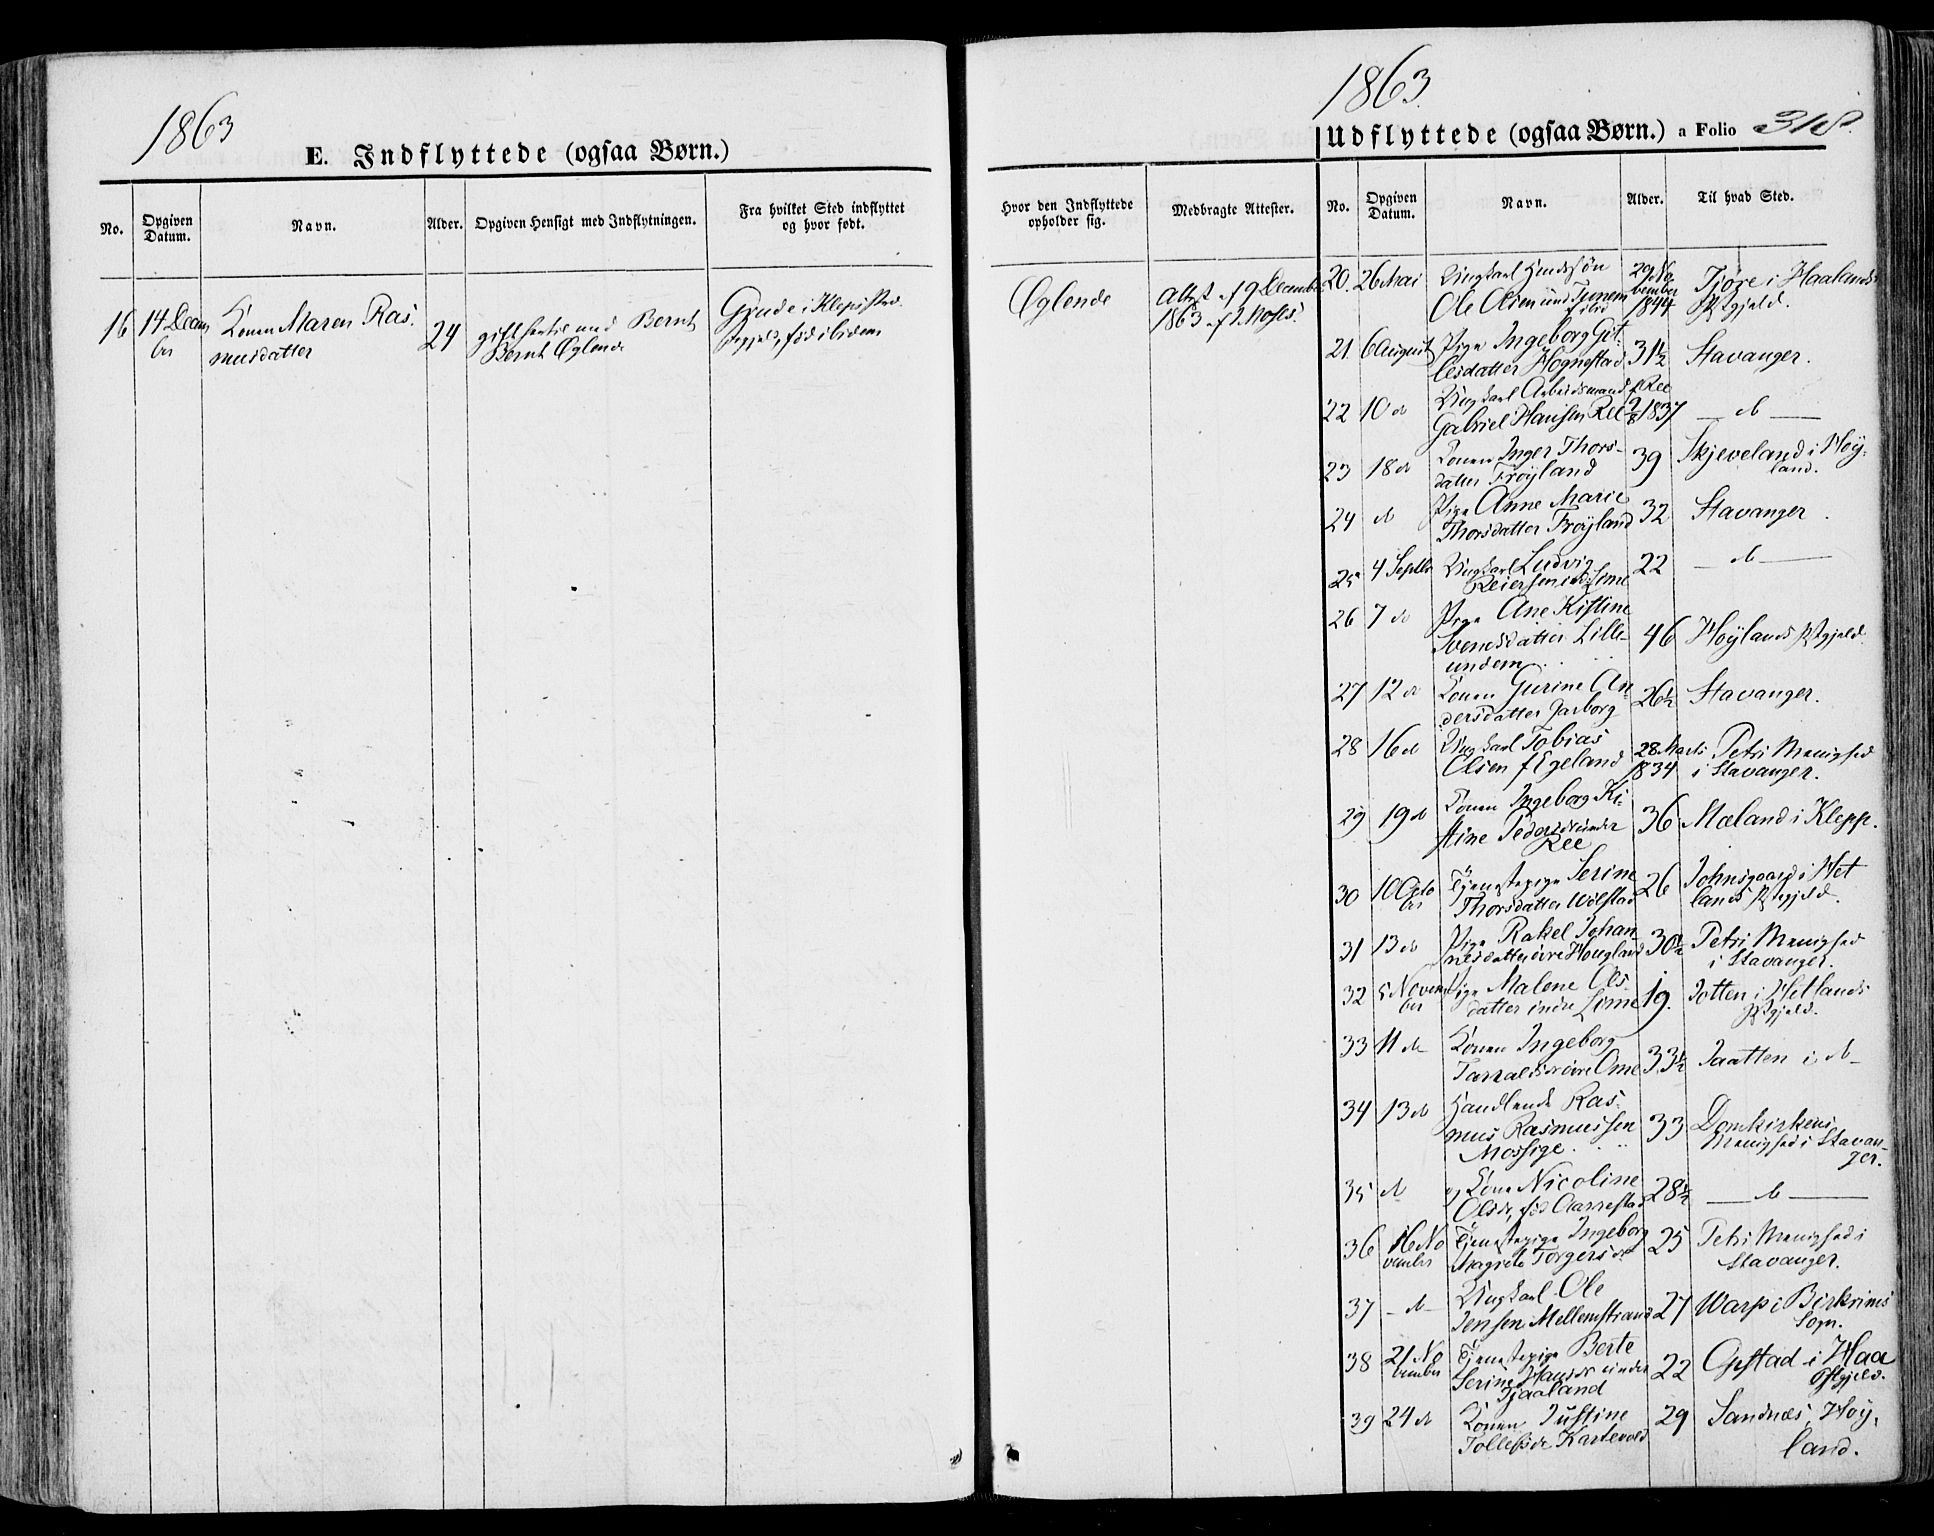 1863
E. Indflyttede (ogsaa Børn.)
No.
Opgiven Datum.
Navn.
Alder.
Opgiven Hensigt med Indflytningen.
Fra hvilket Sted indflyttet og hvor født.
16
14 Decem
ber
Konen Maren Ras
musdatter
24
gift
med Bernt
Bernt Øglende
Grude i Klepp
Øglende
Attest af 19 December
1863 af
1863
Udflyttede (ogsaa Børn.) a Folio 318.
Hvor den Indflyttede opholder sig.
Medbragte Attester.
No.
Opgiven Datum.
Navn.
Alder.
Til hvad Sted.
20. 26 Mai Ungkarl
Ole Olsen
29 No
vember
1844
Tjøre i Haalands
Pstgjeld.
21. 6 August Pige Ingeborg Git
lesdatter Hognestad 31½ Stavanger.
22 10 do Ungkarl Arbeidsmand f Ree
Gabriel Hansen Ree 1837 — do —
23 18 do Konen Inger Thors-
datter Frøyland 39 Skjeveland i Høy-
land.
24 do Pige Anne Marie
Thorsdatter Frøyland 32 Stavanger.
25 4 Septbr Ungkarl Ludvig
Reiersen indre Lime 22 — do —
26 7 do Pige Ane Kistine
Svendsdatter Lille-
undem 46 Høylands Pstgjeld
27 12 do Konen Gurine An-
dersdatter Garborg 26½ Stavanger.
28 16 do Ungkarl Tobias
Olsen f Egeland 28 Marts
1834 Petri Menighed
i Stavanger.
29 19 do Konen Ingeborg Ki-
stine Pedersdr under
Ree 36 Mæland i Klepp.
30 10 Octo
ber Tjenestepige Serine
Thorsdatter Wölstad 26 Johnsgaard i Het
lands Pstgjeld.
31 13 do Pige Rakel Johan
nesdatter övre Hougland 30½ Petri Menighed
i Stavanger.
32 5 Novem
ber Pige Malene Ols
datter indre Lime 19. Jotten i Hetlands
Pstgjeld.
33 11 do Konen Ingeborg
Tarraldsdr övre Ome 33½ Jaatten i do
34 13 do Handlende Ras
mus Rasmussen
Mossige 33 Domkirkens
Menighed i Stavan-
ger.
35 do og Kone Nicoline
Olsdr, fød Aarrestad 28½ — do —
36 16 No
vember Tjenestepige Ingeborg
Magrete Torgersdr 25 Petri Menighed i
Stavanger.
37 — do — Ungkarl Ole
Jensen Mellemstrand 27 Warp i Birkrims
Sogn.
38 21 No
vember Tjenestepige Berte
Serine Hansdr under
Tjaaland 22 Opstad i Haa
Pstgjeld.
39 24 do Konen Justine
Tollefsdr Kartevold 29 Sandnæs, Høy-
land.